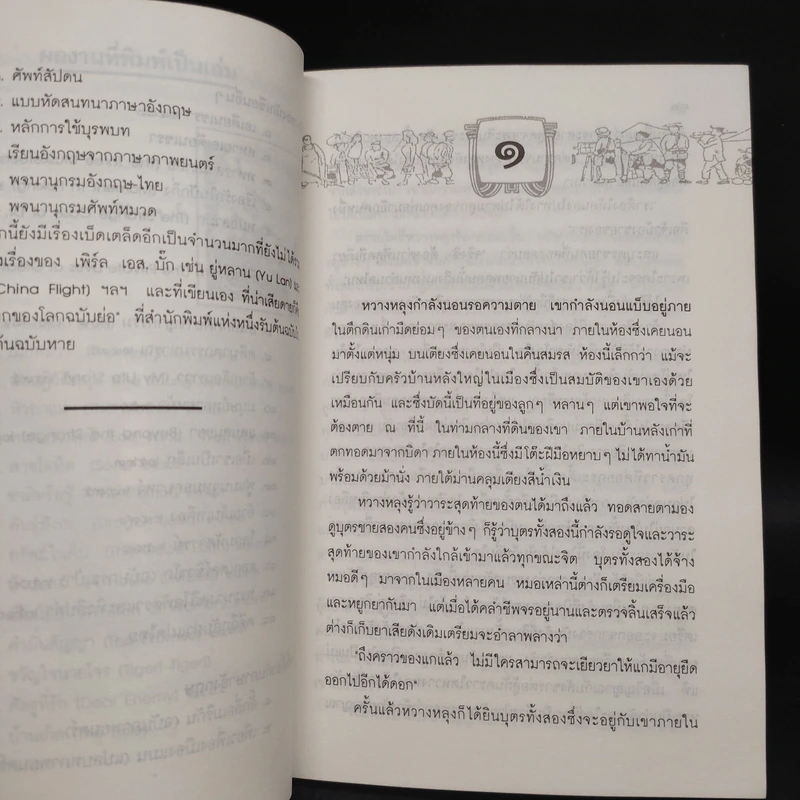 ศัพท์สัปดน
แบบหัดสนทนาภาษาอังกฤษ
หลักการใช้บุรพบท
เรียนอังกฤษจากภาษาภาพยนตร์
พจนานุกรมอังกฤษ-ไทย
พจนานุกรมศัพท์หมวด
กนี้ยังมีเรื่องเบ็ดเตล็ดอีกเป็นจำนวนมากที่ยังไม่ได้
งเรื่องของ เพิร์ล เอส. บั๊ก เช่น ยู่หลาน (Yu Lan)
China Flight) ฯลฯ และที่เขียนเอง ที่น่าเสียดาย
กของโลกฉบับย่อ" ที่สำนักพิมพ์แห่งหนึ่งรับต้นฉบับ
ต้นฉบับหาย
๑
หวางหลุงกำลังนอนรอความตาย เขากำลังนอนแบ็บอยู่ภาย
ในตึกดินเก่ามืดย่อมๆ ของตนเองที่กลางนา ภายในห้องซึ่งเคยนอน
มาตั้งแต่หนุ่ม บนเตียงซึ่งเคยนอนในคืนสมรส ห้องนี้เล็กกว่า แม้จะ
เปรียบกับครัวบ้านหลังใหญ่ในเมืองซึ่งเป็นสมบัติของเขาเองด้วย
เหมือนกัน และซึ่งบัดนี้เป็นที่อยู่ของลูกๆ หลานๆ แต่เขาพอใจที่จะ
ต้องตาย ณ ที่นี้ ในท่ามกลางที่ดินของเขา ภายในบ้านหลังเก่าที่
ตกทอดมาจากบิดา ภายในห้องนี้ซึ่งมีโต๊ะฝีมือหยาบๆ ไม่ได้ทาน้ำมัน
พร้อมด้วยม้านั่ง ภายใต้ม่านคลุมเตียงสีน้ำเงิน
หวางหลุงรู้ว่าวาระสุดท้ายของตนได้มาถึงแล้ว ทอดสายตามอง
ดูบุตรชายสองคนซึ่งอยู่ข้างๆ ก็รู้ว่าบุตรทั้งสองนี้กำลังรอดูใจและวาระ
สุดท้ายของเขากำลังใกล้เข้ามาแล้วทุกขณะจิต บุตรทั้งสองได้จ้าง
หมอดีๆ มาจากในเมืองหลายคน หมอเหล่านี้ต่างก็เตรียมเครื่องมือ
และหยูกยากันมา แต่เมื่อได้คลำชีพจรอยู่นานและตรวจลิ้นเสร็จแล้ว
ต่างก็เก็บยาเสียดังเดิมเตรียมจะอำลาพลางว่า
"ถึงคราวของแกแล้ว ไม่มีใครสามารถจะเยียวยาให้แกมีอายุยืด
ออกไปอีกได้ดอก"
ครั้นแล้วหวางหลุงก็ได้ยินบุตรทั้งสองซึ่งจะอยู่กับเขาภายใน